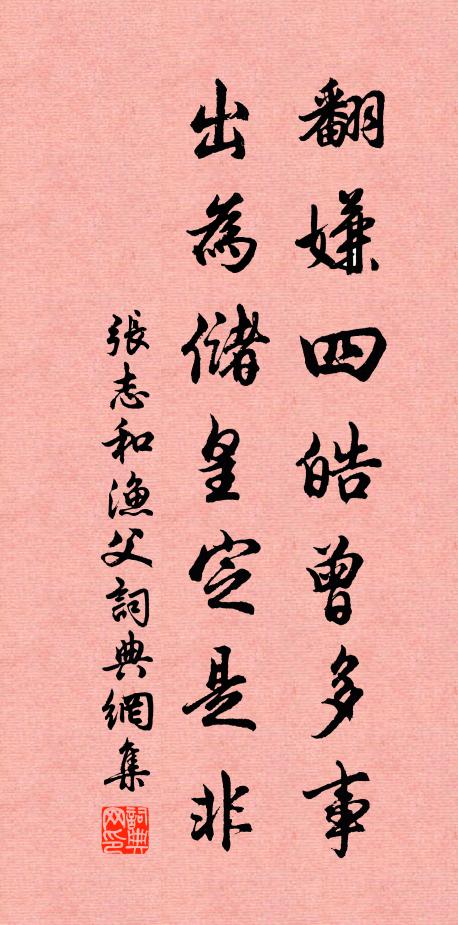 翻嫌四皓曾多事
出為儲皇定是非
張志和漁父詞典網集
詞典网印